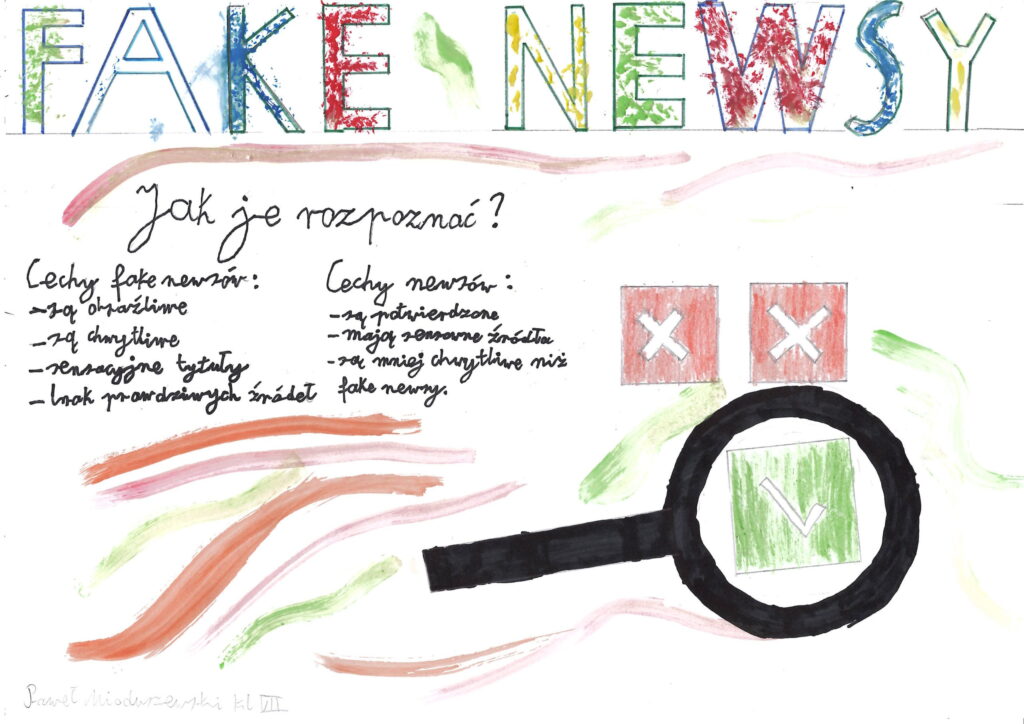 FAKE NEWSY
Jak je rozpoznać?
Cechy fake newsów:
- są obraźliwe
- są chwytliwe
- sensacyjne tytuły
- brak prawdziwych źródeł
Cechy newsów:
- są potwierdzone
- mają sensowne źródła
- są mniej chwytliwe niż
fake newsy.
Paweł Mioduszewski kl VII